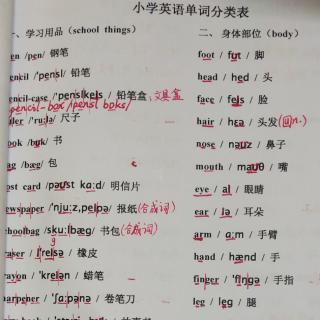 小学英语单词分类表
一、学习用品（school things）
en /pen/ 钢笔
encil /'pensl/ 铅笔
encil-case /'penslkeɪs/ 铅笔盒,文具盒
pencil-box /'penslbɒks/
uler /'ru:lə/ 尺子
ook /bʊk/ 书
ag /bæg/ 包
ost card /pəʊst kɑ:d/ 明信片
ewspaper /'nju:z,peɪpə/ 报纸(合成词)
choolbag /sku:lbæg/ 书包(合成词)
g
raser /ɪ'reɪsə/ 橡皮
rayon /'kreɪən/ 蜡笔
arpener /'ʃɑ:pənə/ 卷笔刀
二、身体部位（body）
foot / fʊt / 脚
head / hed / 头
face / feɪs / 脸
hair / hɛə / 头发
nose / nəʊz / 鼻子
mouth / maʊθ / 嘴
eye / aɪ / 眼睛
ear / ɪə / 耳朵
arm / ɑ:m / 手臂
hand / hænd / 手
finger / 'fɪŋgə / 手指
leg / leg / 腿